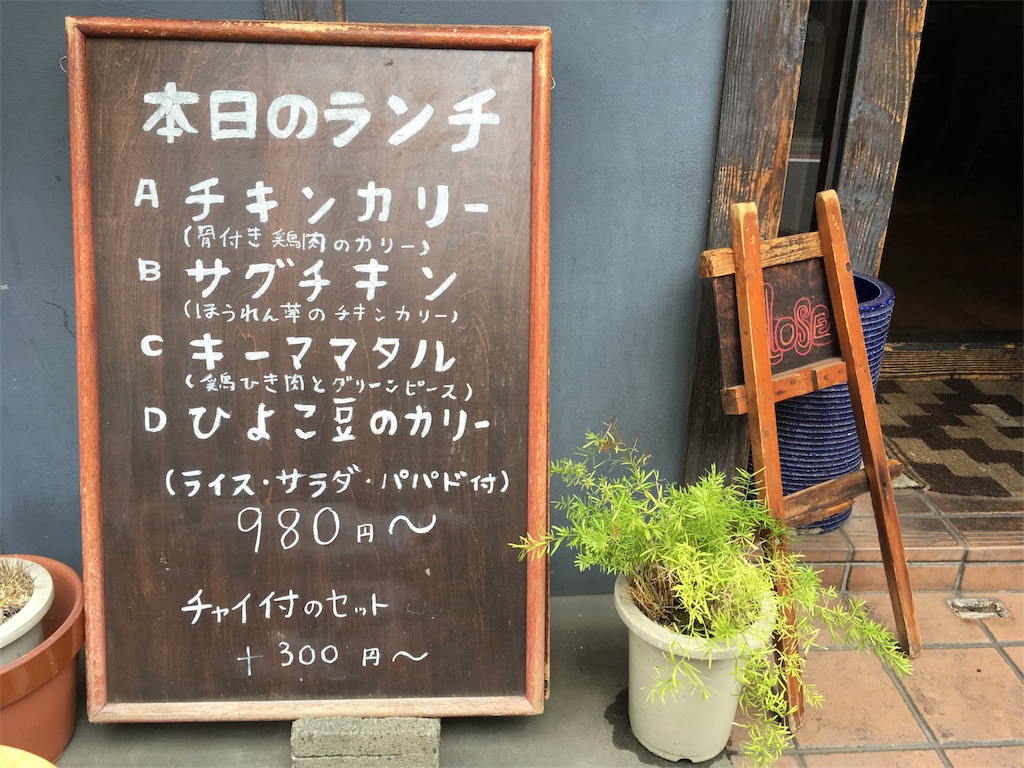 本日のランチ
A チキンカリー
(骨付き鶏肉のカリー)
B サグチキン
(ほうれん草のチキンカリー)
C キーママタル
(鶏ひき肉とグリーンピース)
D ひよこ豆のカリー
(ライス・サラダ・パパド付)
980円〜
チャイ付のセット
+300円〜
CLOSE